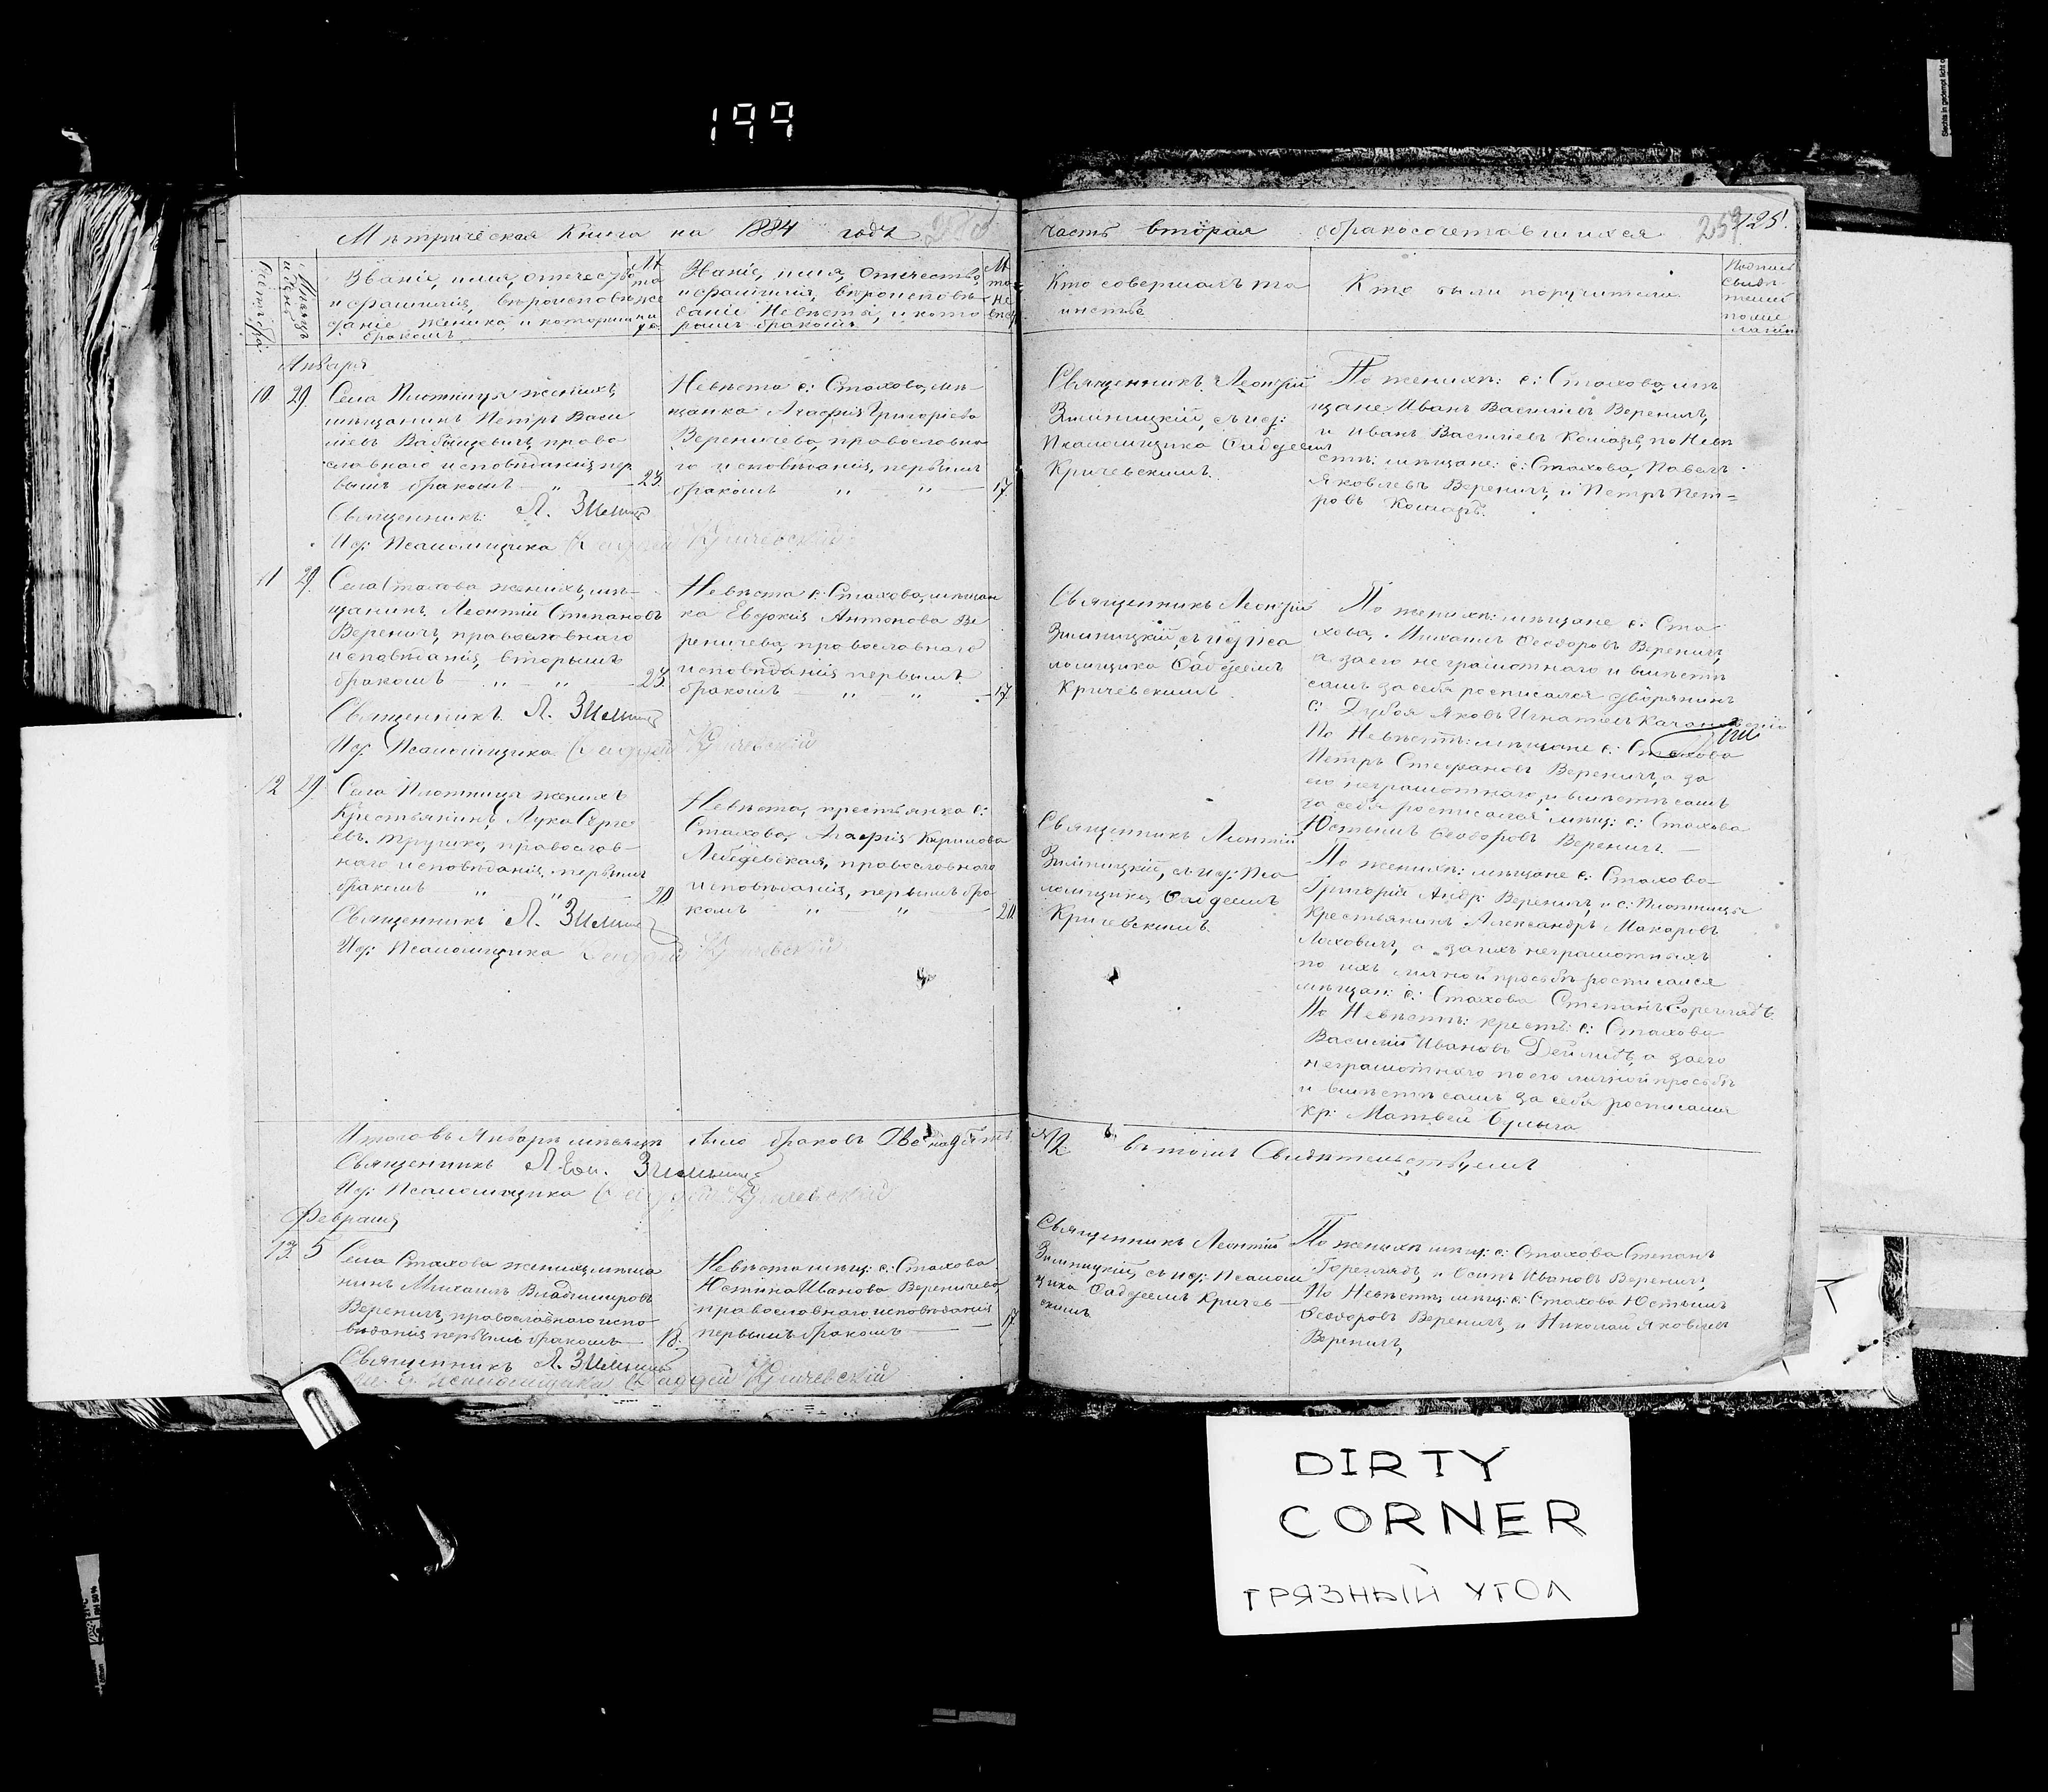 199
Метрическая Книга на 1884 годъ
часть вторая о бракосочетавшихся
259
125.
Счетъ бра
Мѣсяцъ и день
Званіе, имя, отчество
и фамилія, вѣроисповѣ
даніе жениха и которымъ
бракомъ
Званіе, имя, отчество,
и фамилія, вѣроисповѣ-
даніе Невѣсты, и кото
рымъ бракомъ
Кто совершалъ та
инство
Кто были поручители
Подпись
свидѣ
телей
по же
ланію
Января
10. 29. Села Плотницы женихъ,
мѣщанинъ Петръ Васи
ліевъ Вабищевичъ, право
славнаго исповѣданія, пер
вымъ бракомъ — „ — 23.
Священникъ: Л. Зимниц
И. д: Псаломщика Фаддей Кричевскій
Невѣста с: Стахова, мѣ-
щанка Агафія Григоріева
Вереничева, православна
го исповѣданія, первымъ
бракомъ „ „ — 17
Священникъ Леонтій
Зимницкій, съ и. д:
Псаломщика Фаддеемъ
Кричевскимъ.
По женихѣ: с: Стахова, мѣ
щане Иванъ Василіевъ Вереничъ,
и Иванъ Василіевъ Комаръ, по Невѣ
стѣ: мѣщане: с: Стахова, Павелъ
Яковлевъ Вереничъ, и Петръ Пет-
ровъ Комаръ.
11 29. Села Стахова женихъ, мѣ-
щанинъ, Леонтій Степановъ
Вереничъ, православнаго
исповѣданія, вторымъ
бракомъ — „ — „ — 23.
Священникъ Л. Зимниц
И. д: Псаломщика Фаддей Кричевскій
Невѣста с: Стахова, мѣщан
ка Евдокія Антонова Ве
реничева, православнаго
исповѣданія первымъ
бракомъ „ „ — 17
Священникъ Леонтій
Зимницкій, съ и. д: Пса
ломщика Фаддеемъ
Кричевскимъ.
По женихѣ: мѣщане с: Ста
хова, Михаилъ Феодоровъ Вереничъ,
а за его неграмотнаго и вмѣстѣ
самъ за себя росписался дворянинъ
с: Дубоя Яковъ Игнатіевъ Качановскій
По Невѣстѣ: мѣщане с: Стахова
Петръ Стефановъ Вереничъ, а за
его неграмотнаго, и вмѣстѣ самъ
за себя росписался мѣщ: с: Стахова
Юстинъ Феодоровъ Вереничъ. —
12 29. Села Плотницы женихъ
Крестьянинъ, Лука Серге
евъ Трушко, православ-
наго исповѣданія, первымъ
бракомъ „ „ — 20
Священникъ Л. Зимниц
И. д: Псаломщика Фаддей Кричевскій
Невѣста, крестьянка с:
Стахова, Агафія Кирилова
Лебедевская, православнаго
исповѣданія, первымъ бра-
комъ „ „ — 20.
Священникъ Леонтій
Зимницкій, съ и. д: Пса
ломщика Фаддеемъ
Кричевскимъ.
По женихѣ: мѣщане с: Стахова
Григорій Андр: Вереничъ, и с: Плотницы
Крестьянинъ Александръ Макаровъ
Ляховичъ, а за ихъ неграмотныхъ
по ихъ личной просьбѣ росписался
мѣщан: с: Стахова Степанъ Гореглядъ.
По Невѣстѣ: крест: с: Стахова
Василій Ивановъ Дейлидъ, а за его
неграмотнаго по его личной просьбѣ
и вмѣстѣ самъ за себя росписался
кр: Матвей Булыга
Итого въ Январѣ мѣсяцѣ было браковъ Двенадцать
№ 12. въ томъ Свидѣтельствуемъ
Священникъ Леон. Зимниц
И. д: Псаломщика Фаддей Кричевскій
Февраля
13. 5 Села Стахова женихъ, мѣща
нинъ Михаилъ Владимировъ
Вереничъ, православнаго испо-
вѣданія первымъ бракомъ — 18.
Священникъ Л. Зимниц
И. д. Псаломщика Фаддей Кричевскій
Невѣста мѣщ: с: Стахова
Юстина Иванова Вереничева,
православнаго исповѣданія
первымъ бракомъ — 17
Священникъ Леонтій
Зимницкій, съ и. д: Псалом
щика Фаддеемъ Кричев-
скимъ
По женихѣ мѣщ: с: Стахова Степанъ
Гореглядъ, и Осипъ Ивановъ Вереничъ,
По Невѣстѣ мѣщ: с: Стахова Юстинъ
Феодоровъ Вереничъ, и Николай Яковлевъ
Вереничъ,
DIRTY
CORNER
ГРЯЗНЫЙ УГОЛ